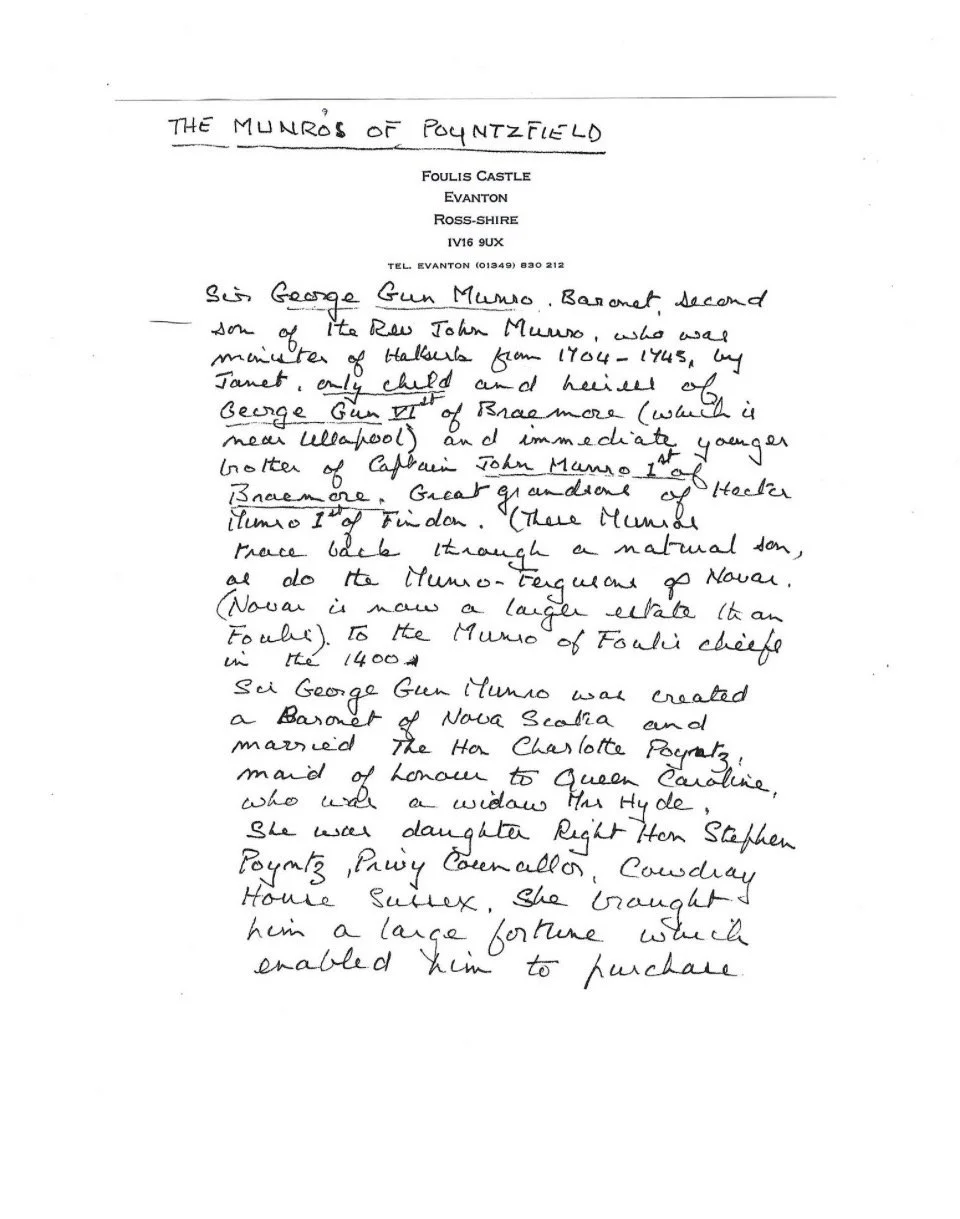 THE MUNRO'S OF POYNTZFIELD
FOULIS CASTLE
EVANTON
ROSS-SHIRE
IV16 9UX
TEL. EVANTON (01349) 830 212
Sir George Gun Munro, Baronet, second
son of the Rev John Munro, who was
minister of Halkirk from 1704-1743, by
Janet, only child and heiress of
George Gun VIst of Braemore (which is
near Ullapool) and immediate younger
brother of Captain John Munro 1st of
Braemore. Great grandsons of Hector
Munro 1st of Findon. (These Munros
trace back through a natural son,
as do the Munro-Fergusons of Novar.
(Novar is now a larger estate than
Foulis). To the Munro of Foulis chiefs
in the 1400s
Sir George Gun Munro was created
a Baronet of Nova Scotia and
married The Hon Charlotte Poyntz,
maid of honour to Queen Caroline,
who was a widow Mrs Hyde,
She was daughter Right Hon Stephen
Poyntz, Privy Councillor, Cowdray
House Sussex, She brought
him a large fortune which
enabled him to purchase